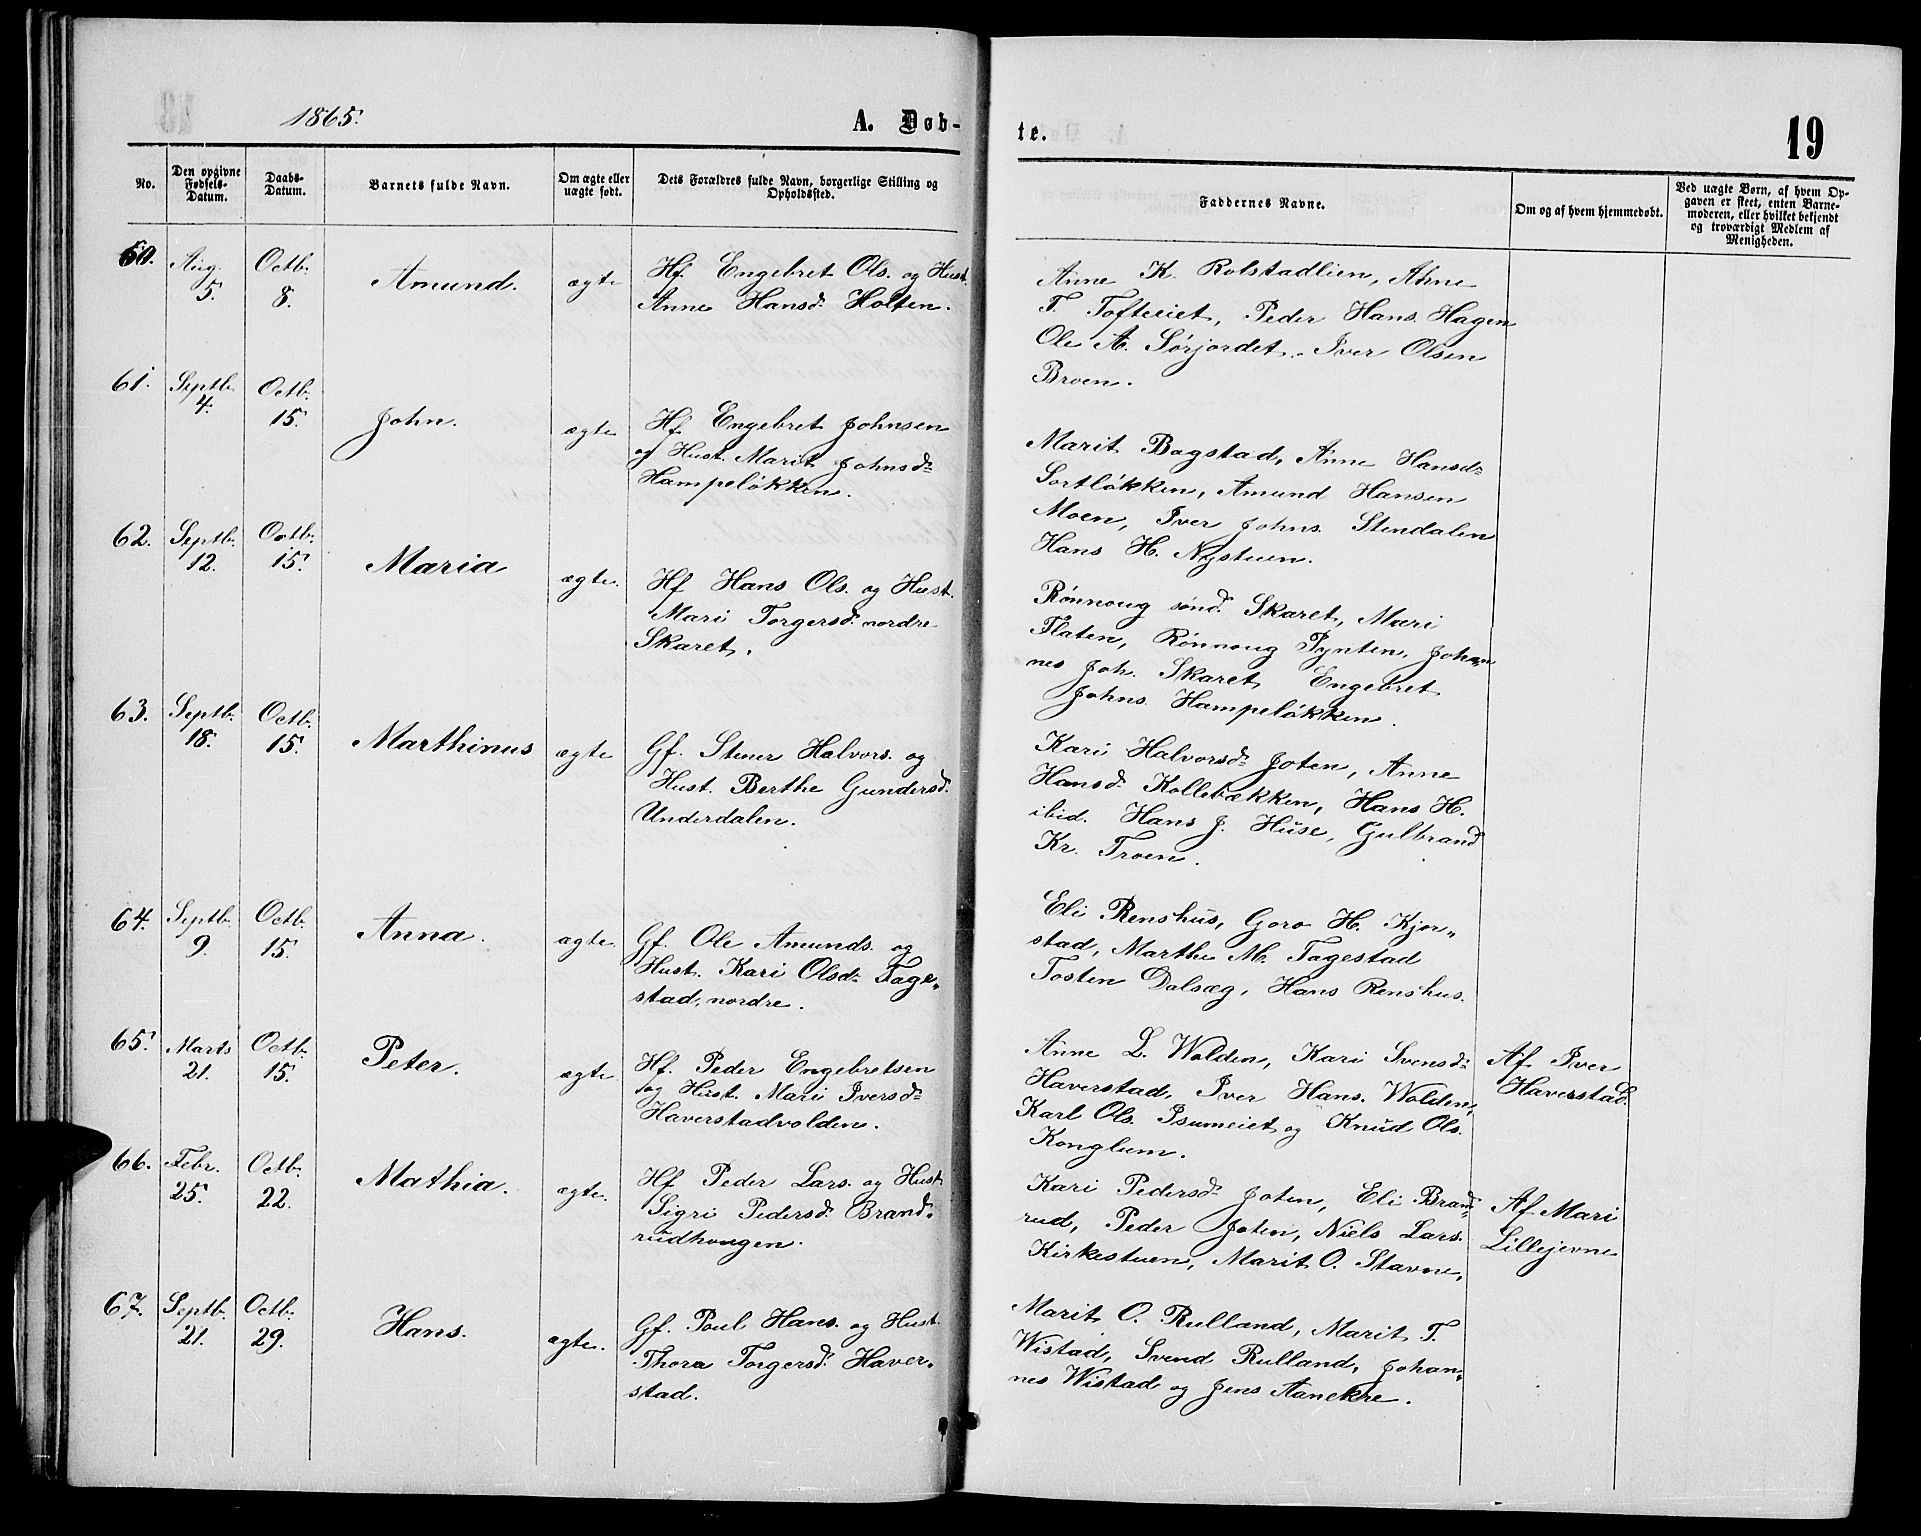 1865.
A. Døb-
te.
19
No.
Den opgivne Fødsels-Datum.
Daabs-Datum.
Barnets fulde Navn.
Om ægte eller uægte født.
Dets Forældres fulde Navn, borgerlige Stilling og Opholdssted.
Faddernes Navne.
Om og af hvem hjemmedøbt.
Ved uægte Børn, af hvem Op-
gaven er skeet, enten Barne-
moderen, eller hvilket bekjendt
og troværdigt Medlem af
Menigheden.
60. Aug. 5. Octb. 8. Amund. ægte
Hf Engebret Ols. og Hust.
Anne Hansd. Holten.
Anne K. Rolstadlien, Anne
T. Tofteeiet, Peder Hans. Hagen
Ole A. Sørjordet. Iver Olsen
Broen.
61. Septb. 4. Octb. 15. John. ægte
Hf Engebret Johnsen
og Hust. Marit Johnsd.
Hampeløkken.
Marit Bagstad, Anne Hansd.
Sortløkken, Amund Hansen
Moen, Iver Johns. Stendalen
Hans H. Nystuen.
62. Septb. 12. Octb. 15. Maria ægte.
Hf Hans Ols. og Hust.
Mari Torgersd. nordre
Skaret.
Rønnoug sønd. Skaret, Mari
Flaten, Rønnoug Pynten, Johan
nes Joh. Skaret Engebret
Johns. Hampeløkken.
63. Septb. 18. Octb. 15. Marthinus ægte
Gf. Stener Halvors. og
Hust. Berthe Gundersd.
Underdalen.
Kari Halvorsd. Joten, Anne
Hansd. Kollebækken, Hans H.
ibid. Hans J. Huse, Gulbrand
Kr. Troen.
64. Septb. 9. Octb. 15. Anna. ægte.
Gf. Ole Amunds. og
Hust. Kari Olsd. Tage„
stad, nordre.
Eli Renshus, Goro H. Kjør„
stad, Marthe M. Tagestad
Tosten Dalsæg, Hans Renshus.
65. Marts 21. Octb. 15. Peter. ægte
Hf. Peder Engebretsen
og Hust. Mari Iversd.
Haverstadvolden.
Anne L. Wolden, Kari Svensd.
Haverstad, Iver Hans. Wolden,
Karl Ols. Isumeiet og Knud Ols.
Konglum.
Af Iver
Haverstad.
66. Febr. 25. Octb. 22. Mathia. ægte.
Hf Peder Lars. og Hust.
Sigri Pedersd. Brand„
rudhougen.
Kari Pedersd. Joten, Eli Brand„
rud, Peder Joten, Niels Lars.
Kirkestuen, Marit O. Stavne,
Af Mari
Lillejevne
67. Septb. 21. Octb. 29. Hans. ægte.
Gf. Poul Hans. og Hust.
Thora Torgersd. Haver„
stad.
Marit O. Rulland, Marit T.
Wistad, Svend Rulland, Johan„
nes Wistad og Jens Aanekre.